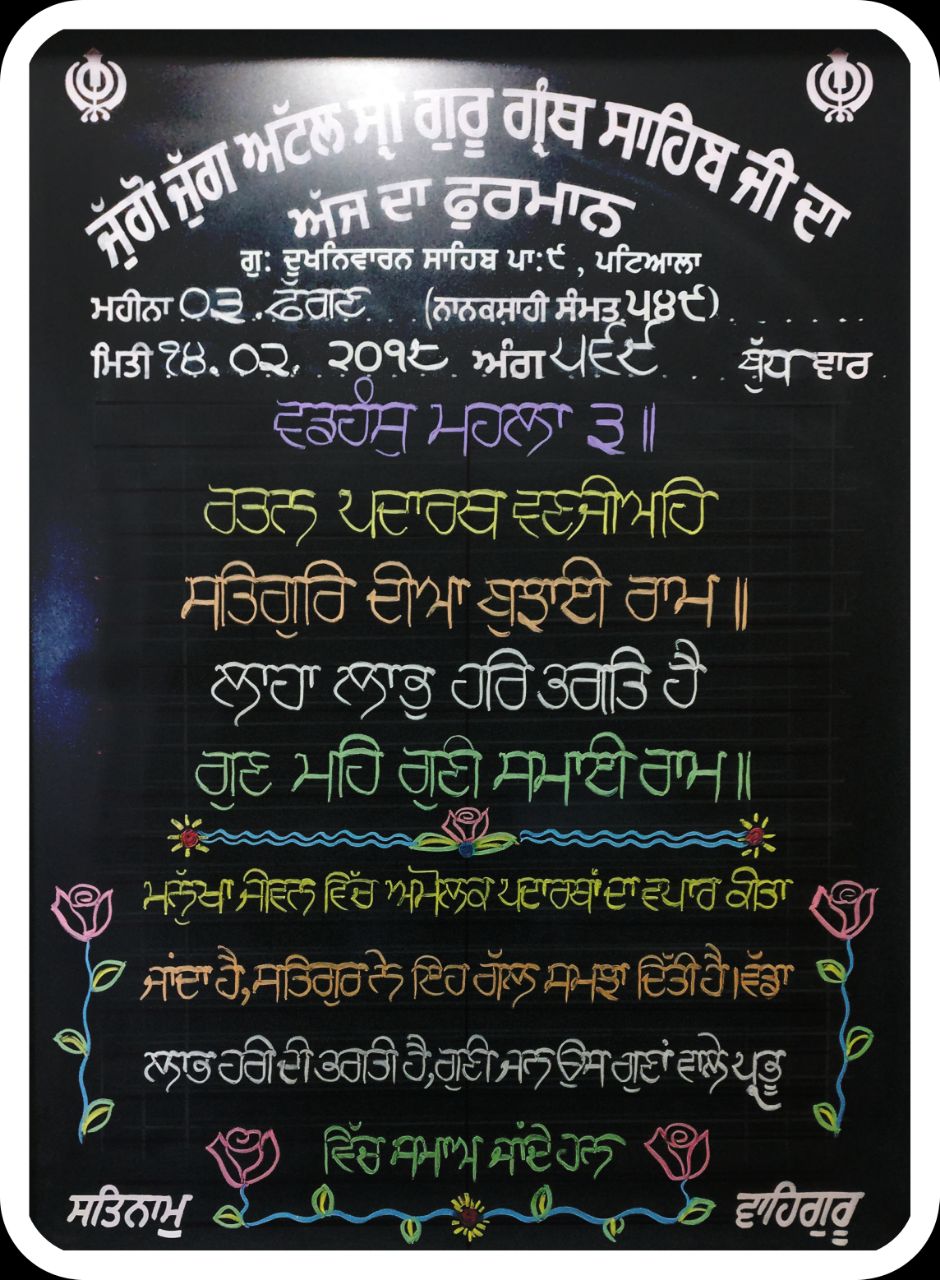 ਜੁੱਗੋ ਜੁੱਗ ਅਟੱਲ ਸ੍ਰੀ ਗੁਰੂ ਗ੍ਰੰਥ ਸਾਹਿਬ ਜੀ ਦਾ
ਅੱਜ ਦਾ ਫੁਰਮਾਨ
ਗੁ: ਦੂਖਨਿਵਾਰਨ ਸਾਹਿਬ ਪਾ:੯ , ਪਟਿਆਲਾ
ਮਹੀਨਾ ੦੩. ਫੱਗਣ (ਨਾਨਕਸ਼ਾਹੀ ਸੰਮਤ ੫੪੯)
ਮਿਤੀ ੧੪. ੦੨. ੨੦੧੮ ਅੰਗ ੫੬੯ ਬੁੱਧ ਵਾਰ
ਵਡਹੰਸੁ ਮਹਲਾ ੩॥
ਰਤਨ ਪਦਾਰਥ ਵਣਜੀਅਹਿ
ਸਤਿਗੁਰਿ ਦੀਆ ਬੁਝਾਈ ਰਾਮ॥
ਲਾਹਾ ਲਾਭੁ ਹਰਿ ਭਗਤਿ ਹੈ
ਗੁਣ ਮਹਿ ਗੁਣੀ ਸਮਾਈ ਰਾਮ॥
ਮਨੁੱਖਾ ਜੀਵਨ ਵਿੱਚ ਅਮੋਲਕ ਪਦਾਰਥਾਂ ਦਾ ਵਪਾਰ ਕੀਤਾ
ਜਾਂਦਾ ਹੈ, ਸਤਿਗੁਰ ਨੇ ਇਹ ਗੱਲ ਸਮਝਾ ਦਿੱਤੀ ਹੈ। ਵੱਡਾ
ਲਾਭ ਹਰੀ ਦੀ ਭਗਤੀ ਹੈ, ਗੁਣੀ ਜਨ ਉਸ ਗੁਣਾਂ ਵਾਲੇ ਪ੍ਰਭੂ
ਵਿੱਚ ਸਮਾਅ ਜਾਂਦੇ ਹਨ
ਸਤਿਨਾਮੁ ਵਾਹਿਗੁਰੂ